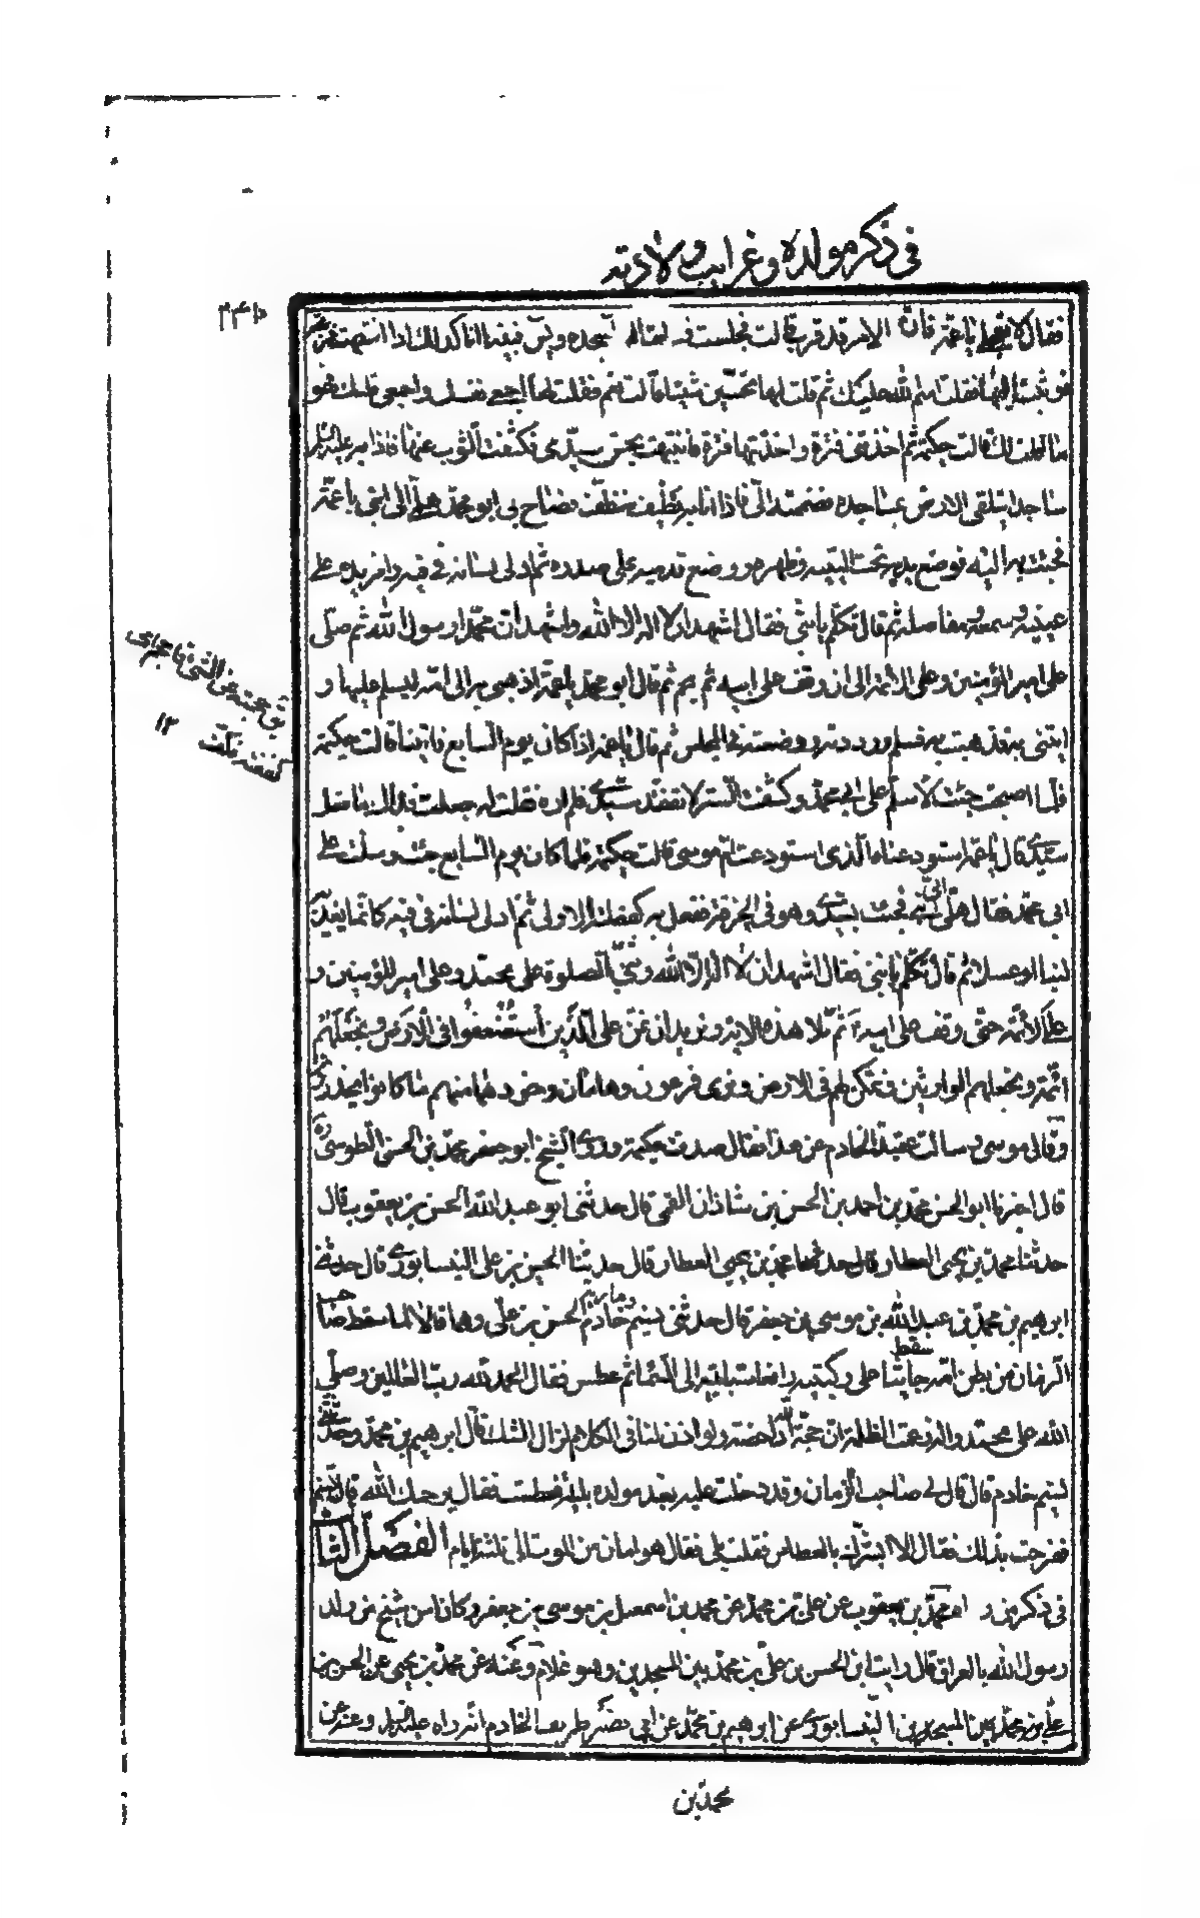 في ذكر مولده وغرايب ولادته
٢٤٥
فقال لا تعجلي يا عمة فان الامر قد قرب قالت فجلست فقرات الم السجدة ويس فبينما انا كذلك اذا انتبهت فزعة
فوثبت اليها فقلت اسم الله عليك ثم قلت لها تحسين شيئا قالت نعم فقلت لها اجمعي نفسك واجمعي قلبك فهو
ما قلت لك قالت حكيمة ثم اخذتني فترة واخذتها فترة فانتبهت بحس سيدي فكشفت الثوب عنها فاذا به عليه السلام
ساجدا يتلقى الارض بمساجده فضممته الي فاذا انا به نظيف منظف فصاح بي ابو محمد هلمي الي ابني يا عمة
فجئت به اليه فوضع يديه تحت اليتيه وظهره ووضع قدميه على صدره ثم ادلى لسانه في فيه وامر يده على
عينيه وسمعه ومفاصله ثم قال تكلم يا بني فقال اشهد ان لا اله الا الله واشهد ان محمدا رسول الله ثم صلى
على امير المؤمنين وعلى الائمة الى ان وقف على ابيه ثم قال ابو محمد يا عمة اذهبي به الى امه ليسلم عليها و
ايتني به فذهبت به فسلم ورددته ووضعته في المجلس ثم قال يا عمة اذا كان يوم السابع فاتينا قالت حكيمة
فلما اصبحت جئت لاسلم على ابي محمد وكشفت الستر لاتفقد سيدي فلم اره فقلت له جعلت فداك ما فعل
سيدي قال يا عمة استودعناه الذي استودعت ام موسى قالت حكيمة فلما كان يوم السابع جئت وسلمت على
ابي محمد فقال هلمي الي ابني فجئت بسيدي وهو في الخرقة ففعل به كفعلته الاولى ثم ادلى لسانه في فيه كانما يغذيه
لبنا او عسلا ثم قال تكلم يا بني فقال اشهد ان لا اله الا الله وثنى بالصلوة على محمد وعلى امير المؤمنين و
على الائمة حتى وقف على ابيه ثم تلا هذه الاية ونريد ان نمن على الذين استضعفوا في الارض ونجعلهم
ائمة ونجعلهم الوارثين ونمكن لهم في الارض ونرى فرعون وهامان وجنودهما منهم ما كانوا يحذرون
وقال موسى وسالت عقبة الخادم عن هذا فقال صدقت حكيمة وروى الشيخ ابو جعفر محمد بن الحسن الطوسي ره
قال اخبرنا ابو الحسن محمد بن احمد بن الحسن بن شاذان القمي قال حدثني ابو عبد الله الحسن بن يعقوب قال
حدثنا محمد بن يحيى العطار قال حدثنا محمد بن يحيى العطار قال حدثنا الحسن بن علي النيسابوري قال حدثني
ابرهيم بن محمد بن عبد الله بن موسى بن جعفر قال حدثني نسيم خادم الحسن بن علي ومارية وهما قالا لما سقط صاحب
الزمان من بطن امه سقط جاثيا على ركبتيه رافعا سبابتيه الى السماء ثم عطس فقال الحمد لله رب العالمين وصلى
الله على محمد واله زعمت الظلمة ان حجة الله داحضة ولو اذن لنا في الكلام لزال الشك قال ابرهيم بن محمد وحدثني
نسيم خادم قال قال لي صاحب الزمان وقد دخلت عليه بعد مولده بليلة فعطست فقال يرحمك الله قال نسيم
ففرحت بذلك فقال الا ابشرك بالعطاس فقلت بلى فقال هو امان من الموت الى ثلثة ايام الفصل الثاني
في ذكر من راه محمد بن يعقوب عن علي بن محمد عن محمد بن اسمعيل بن موسى بن جعفر وكان اسن شيخ من ولد
رسول الله بالعراق قال رايت ابن الحسن بن علي بن محمد بين المسجدين وهو غلام وعنه عن محمد بن يحيى عن الحسن بن
علي بن محمد بين المسجدين النيسابوري عن ابرهيم بن محمد عن ابي نصر طريف الخادم انه راه عليه السلام وعنه عن
محمد بن
١٢